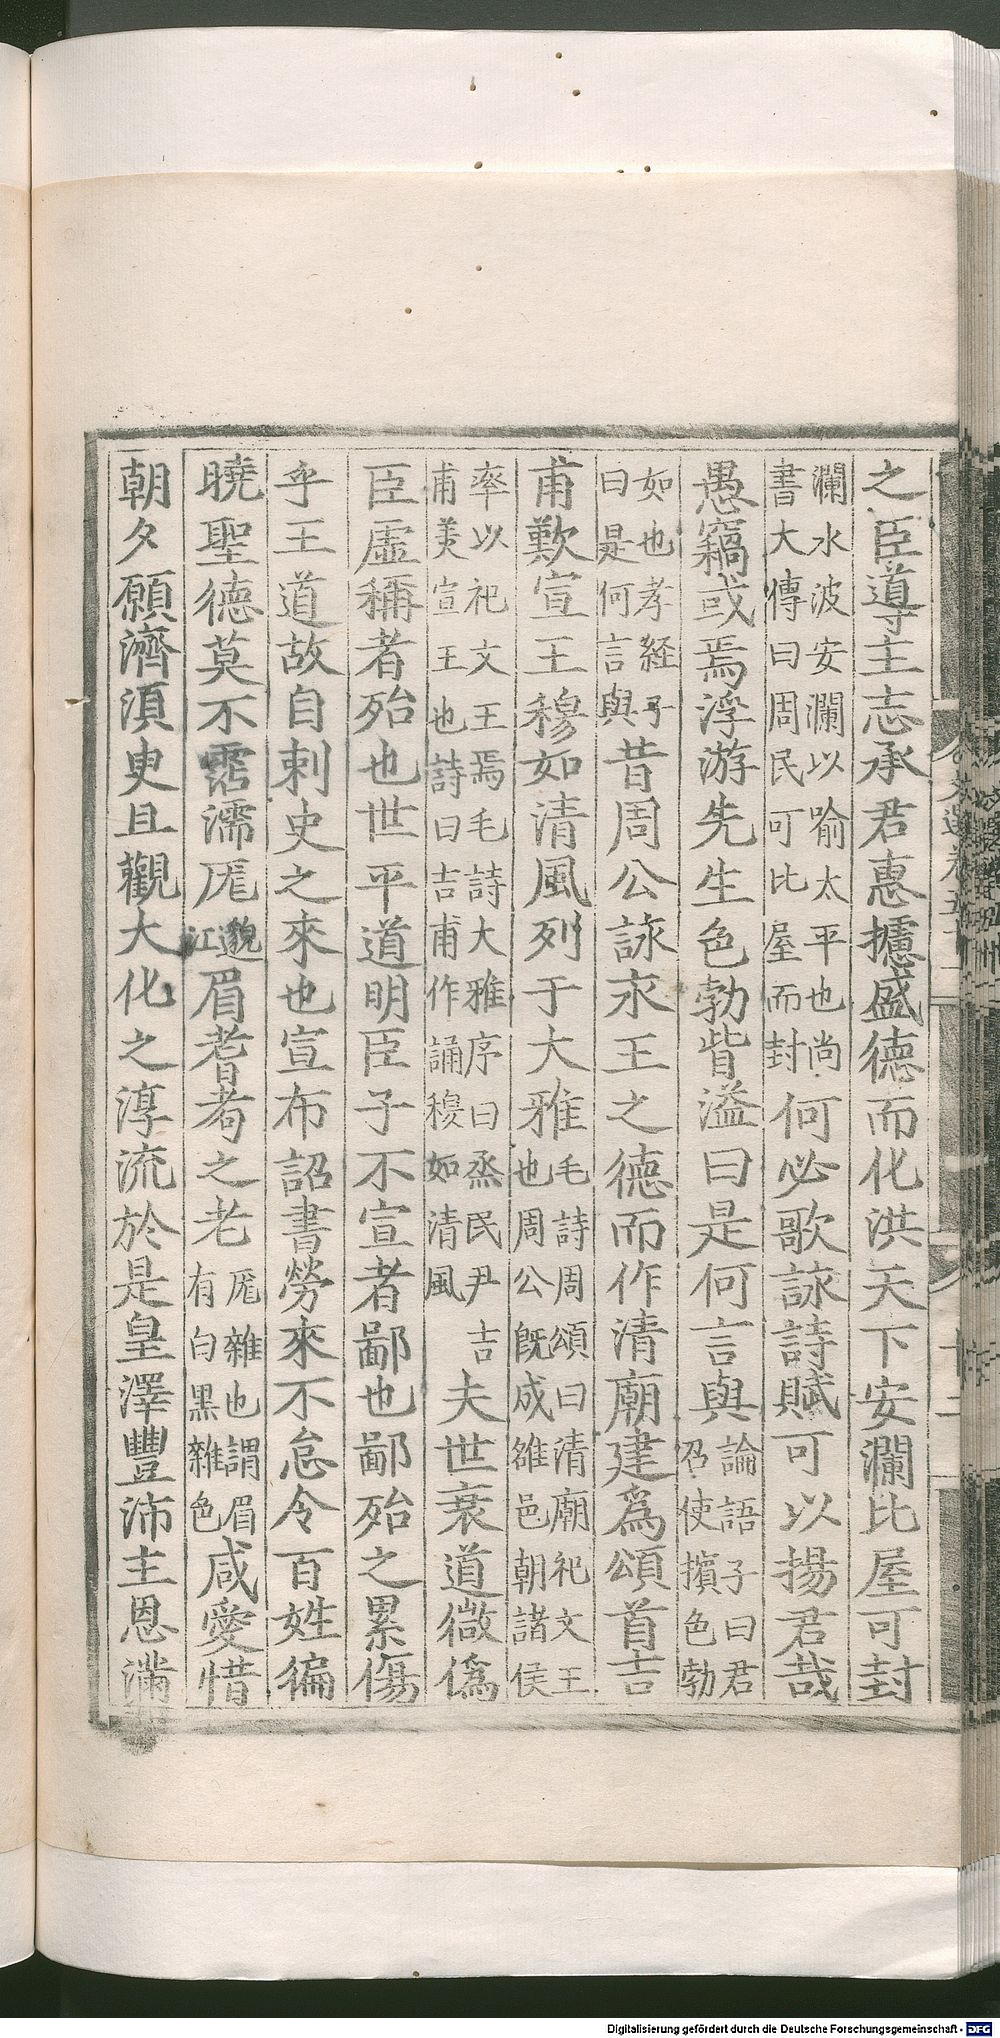 之臣導主志承君惠攄盛德而化洪天下安瀾比屋可封
瀾水波安瀾以喻太平也尚
書大傳曰周民可比屋而封
何必歌詠詩賦可以揚君哉
愚竊或焉浮游先生色勃眥溢曰是何言與
論語子曰君
召使擯色勃
如也孝経子
曰是何言與
昔周公詠文王之德而作清廟建爲頌首吉
甫歎宣王穆如清風列于大雅
毛詩周頌曰清廟祀文王
也周公旣成雒邑朝諸侯
率以祀文王焉毛詩大雅序曰烝民尹吉
甫美宣王也詩曰吉甫作誦穆如清風
夫世衰道微僞
臣虛稱者殆也世平道明臣子不宣者鄙也鄙殆之累傷
乎王道故自刺史之來也宣布詔書勞來不怠令百姓徧
曉聖德莫不霑濡厖
邈
江
眉耆耇之老
厖雜也謂眉
有白黑雜色
咸愛惜
朝夕願濟須史且觀大化之淳流於是皇澤豐沛主恩滿
Digitalisierung gefördert durch die Deutsche Forschungsgemeinschaft - DFG